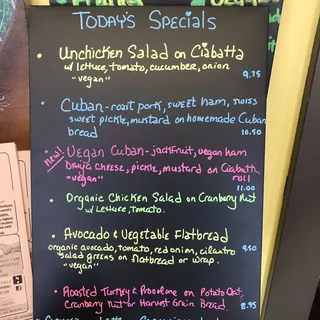 TODAY'S SPECIALS
Unchicken Salad on Ciabatta
w/ lettuce, tomato, cucumber, onion
"vegan" 9.75
Cuban - roast pork, sweet ham, swiss
sweet pickle, mustard on homemade Cuban
bread 10.50
new! Vegan Cuban - jackfruit, vegan ham
Daiya cheese, pickle, mustard on Ciabatta
"vegan" roll
11.00
Organic Chicken Salad on Cranberry Nut
w/ Lettuce, Tomato.
Avocado & Vegetable Flatbread
organic avocado, tomato, red onion, cilantro 9.50
salad greens on flatbread or wrap.
"vegan"
Roasted Turkey & Provolone on Potato Oat,
Cranberry Nut or Harvest Grain Bread. 8.95